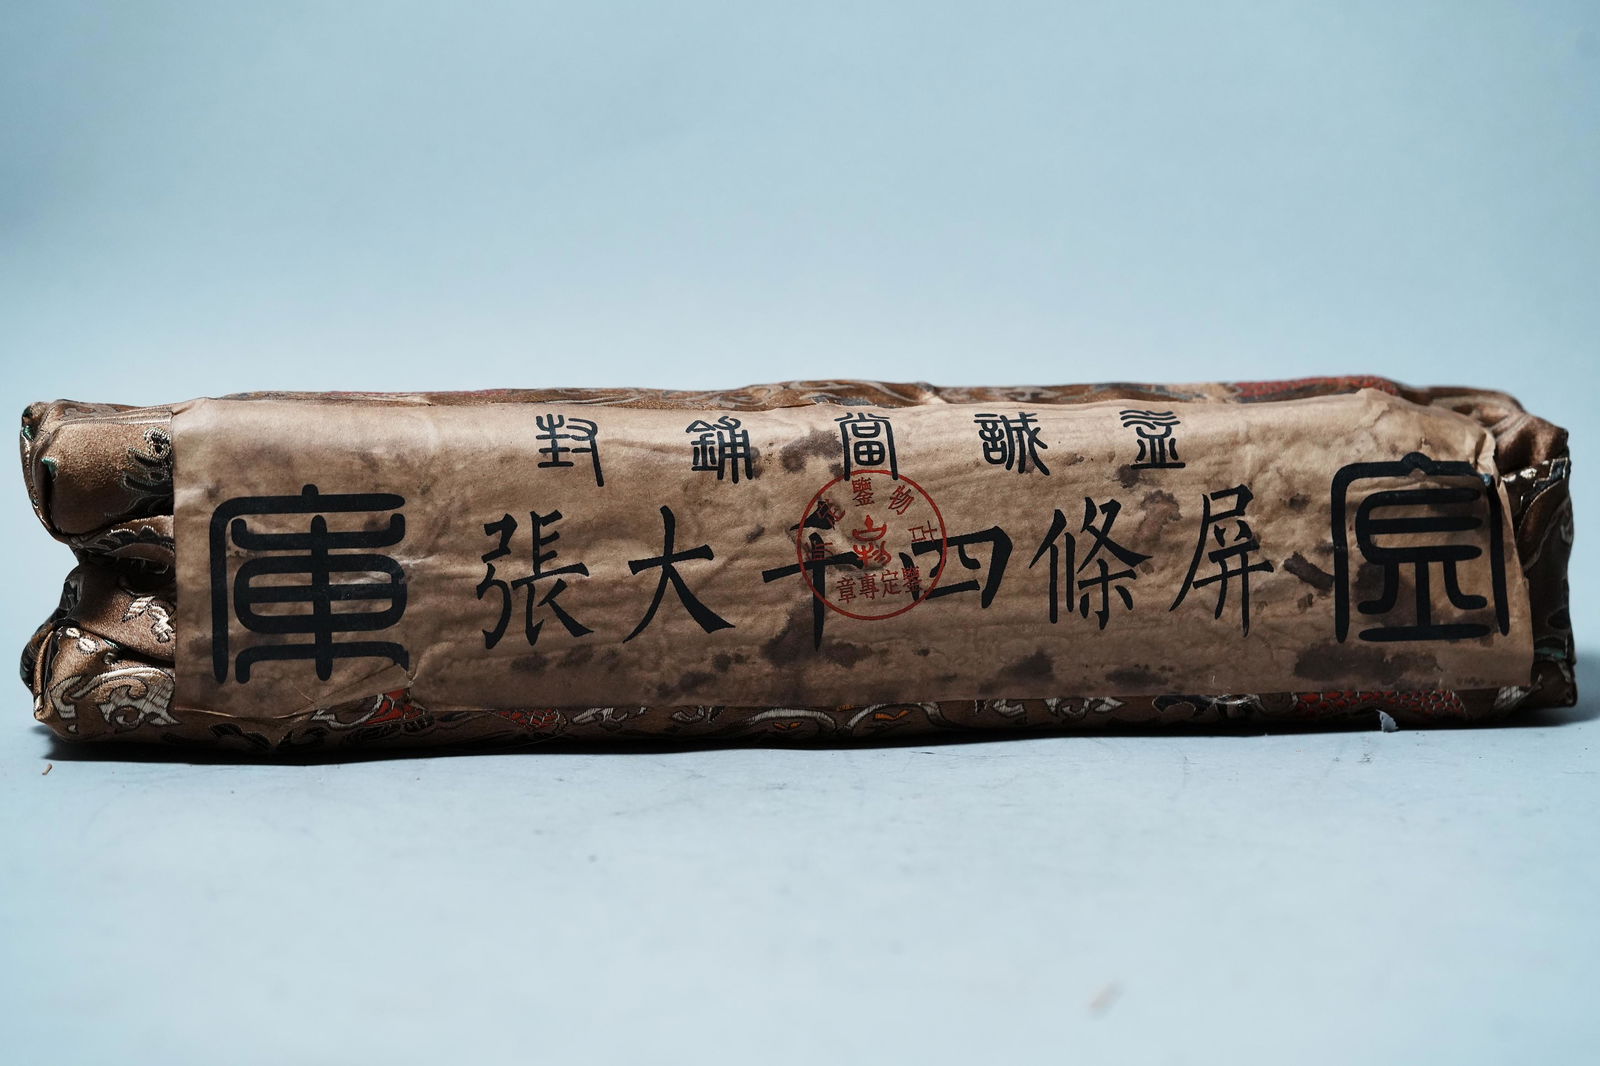 益誠當鋪封
庫
張大千四條屏
古物鑒定
鑒定專章